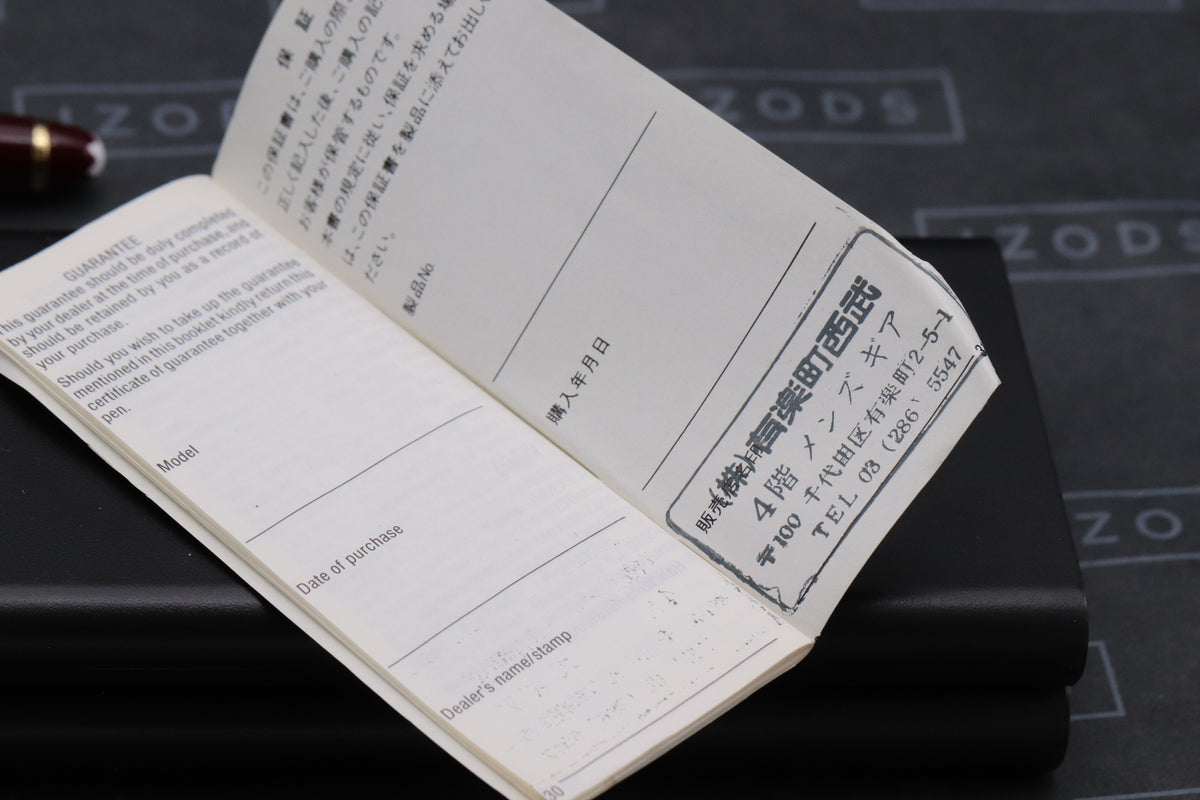 GUARANTEE
This guarantee should be duly completed
by your dealer at the time of purchase, and
should be retained by you as a record of
your purchase.
Should you wish to take up the guarantee
mentioned in this booklet kindly return this
certificate of guarantee together with your
pen.
Model
Date of purchase
Dealer's name/stamp
30
保 証
この保証書は、ご購入の際
正しく記入した後、ご購入の記
お客様が保管するものです。
本書の規定に従い、保証を求める場
は、この保証書を製品に添えてお出し
ださい。
製品No.
購入年月日
販売
(株)有楽町西武
4階 メンズギア
〒100 千代田区有楽町2-5-1
TEL 03 (286) 5547
IZODS
ZODS
IZODS
ZO